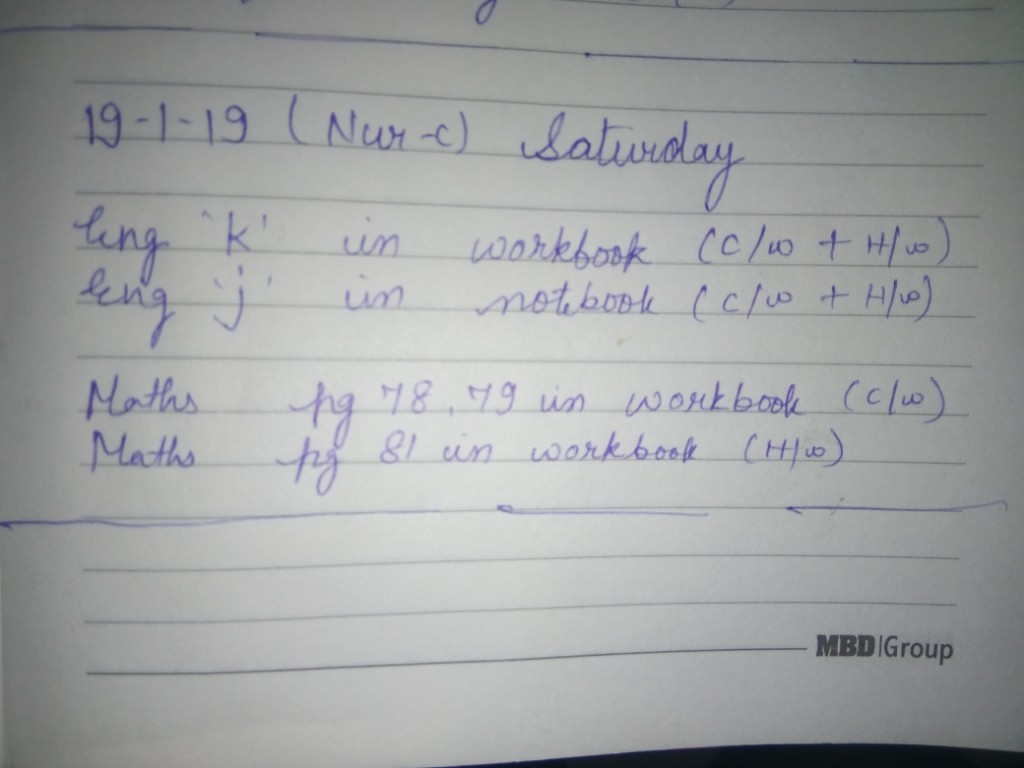 19-1-19 (Nur-c) Saturday
Eng 'k' in workbook (C/w + H/w)
Eng 'j' in notebook (C/w + H/w)
Maths pg 78, 79 in workbook (C/w)
Maths pg 81 in workbook (H/w)
MBD|Group